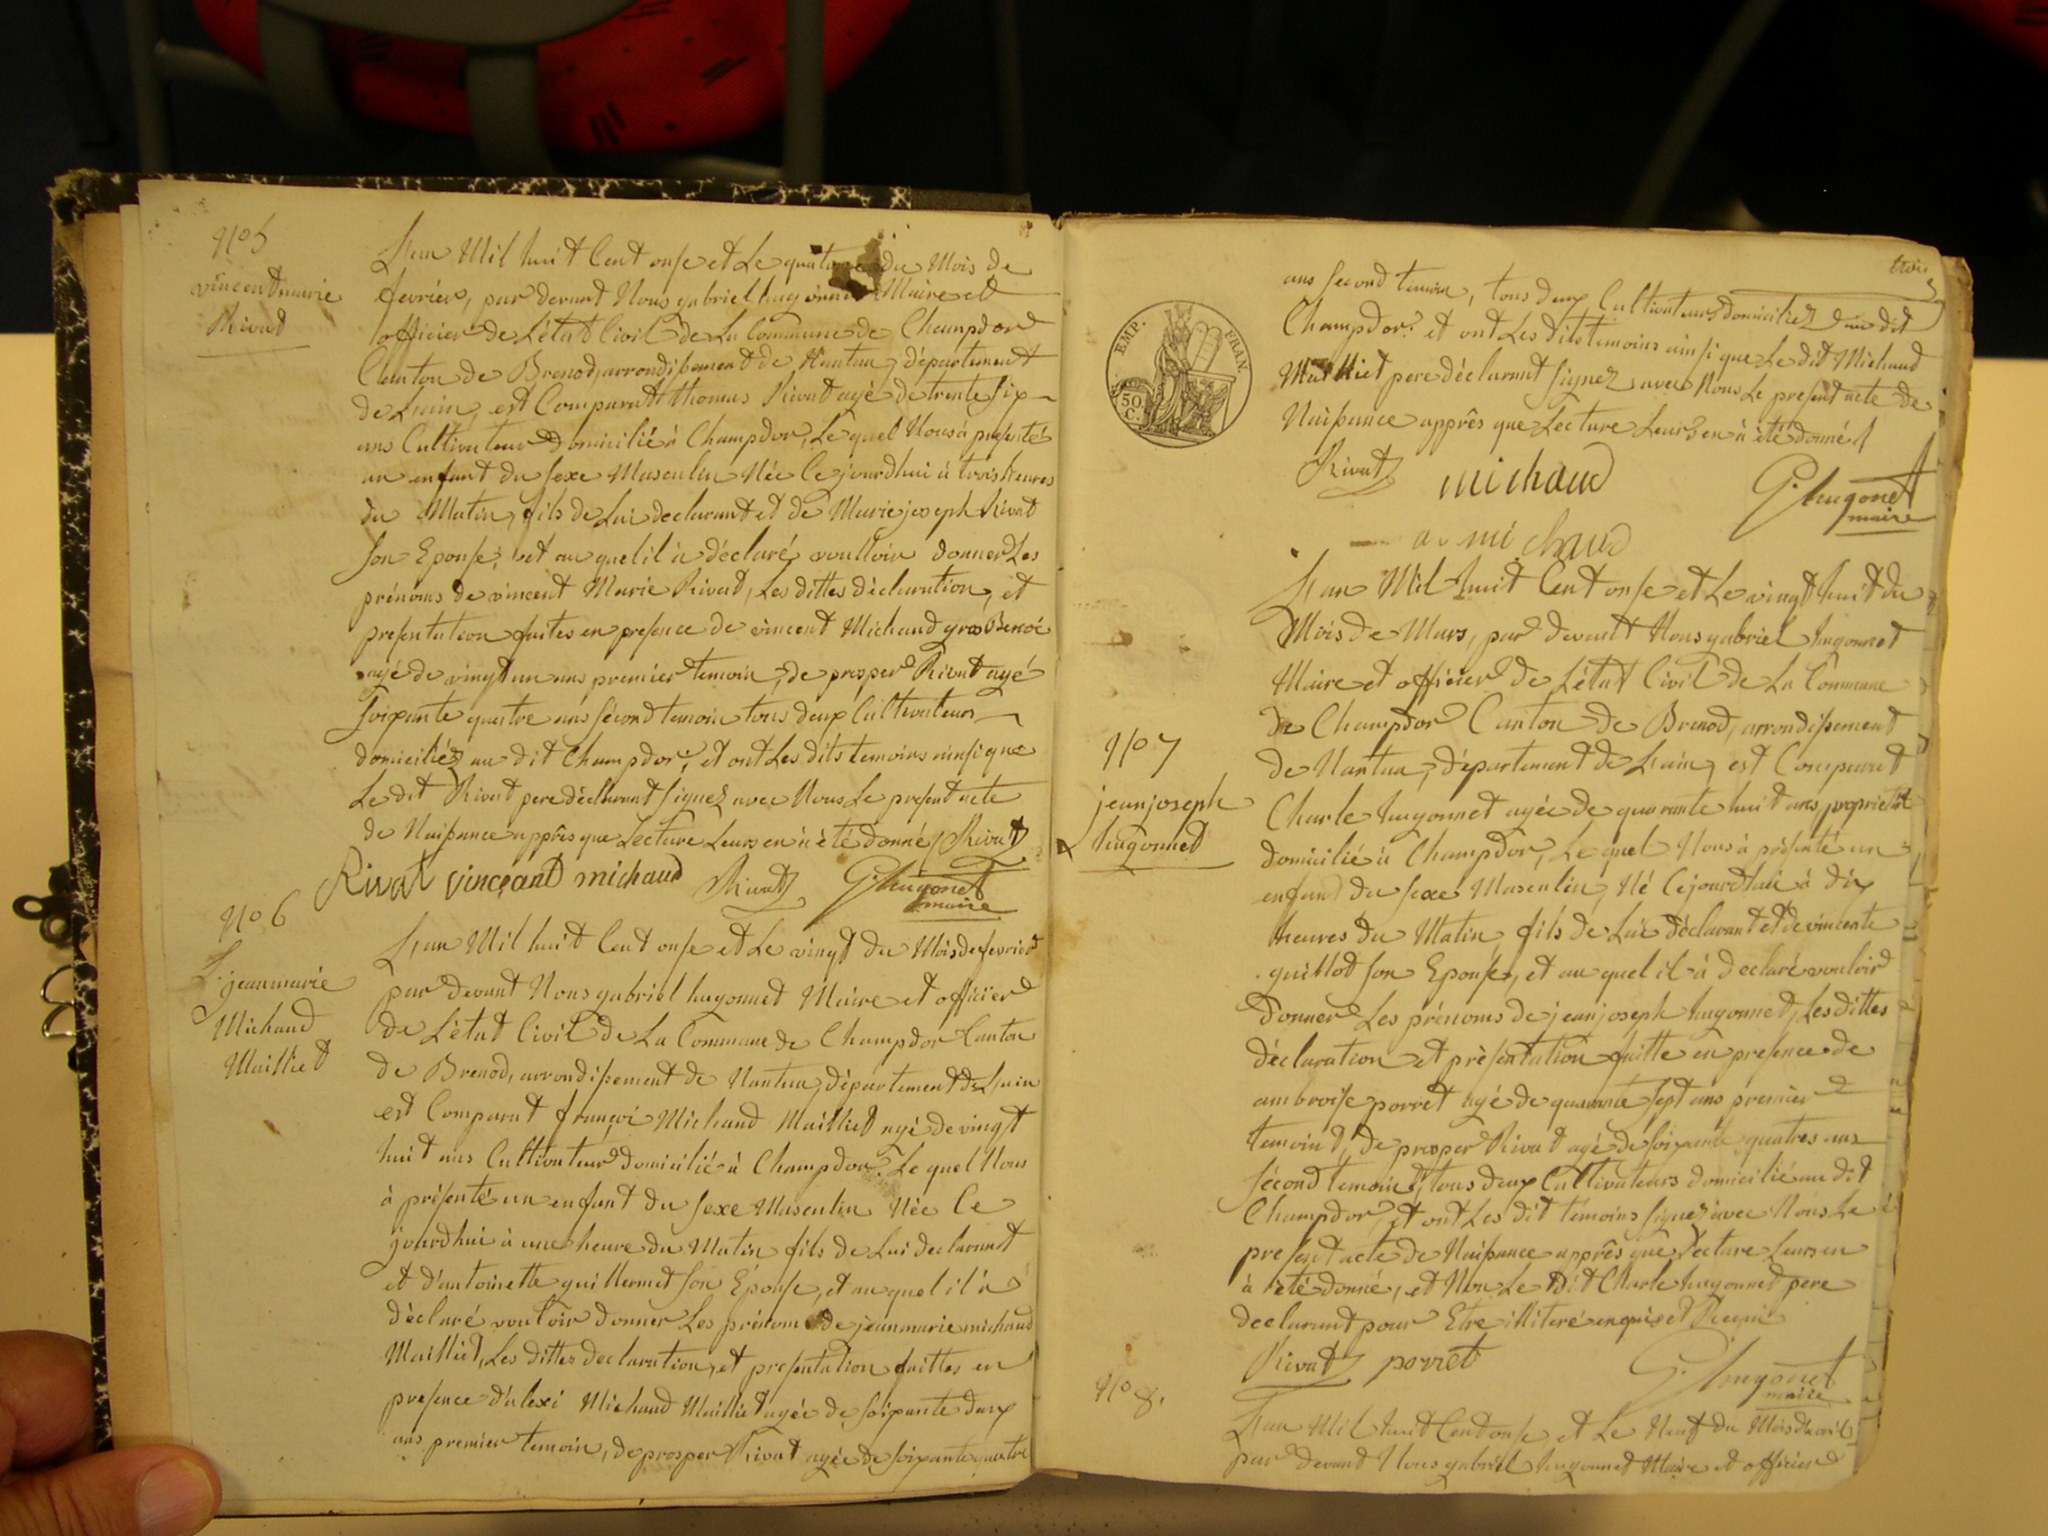 N.o 5
vincent marie
Rivat
L'an Mil huit Cent onse et Le quatorze du Mois de
fevrier, par devant Nous gabriel hugonnet Maire et
officier de L'état Civil de La Commune de Champdor
Canton de Brenod, arrondissement de Nantua, département
de L'ain, est Comparut thomas Rivat agé de trente six
ans Cultivateur domicilié à Champdor, Le quel Nous à présenté
un enfant du sexe Masculin Née Ce jourdhui à trois heures
du Matin, fils de Lui declarant et de Marie joseph Rivat
son Epouse, et au quel il à déclaré voulloir donner Les
prénoms de vincent Marie Rivat, Les dittes déclaration, et
presentation faites en presence de vincent Michaud gros Benoi
agé de vingt un ans premier temoin, de prosper Rivat agé
soixante quatre ans sécond temoin tous deux Cultivateurs
domiciliéz au dit Champdor, et ont Les dits temoins ainsi que
Le dit Rivat pere déclarant signez avec Nous Le present acte
de Naissance apprês que Lecture Leurs en à été donné / Rivat
Rivat vinçant michaud Rivat G. hugonet
maire
N.o 6
jeanmarie
Michaud
Mailliet
L'an Mil huit Cent onse et Le vingt du Mois de fevrier
par devant Nous gabriel hugonnet Maire et officier
de L'état Civil de La Commune de Champdor Canton
de Brenod, arrondissement de Nantua, département de L'ain
est Comparut françoi Michaud Mailliet agé de vingt
huit ans Cultivateur domicilié à Champdor, Le quel Nous
à présenté un enfant du sexe Masculin Née Ce
jourdhui à une heure du Matin fils de Lui declarant
et d'antoinette guillermet son Epouse, et au quel il à
déclaré vouloir donner Les prénoms de jeanmarie michaud
Mailliet, Les dittes declaration, et presentation faittes en
presence d'alexi Michaud Mailliet agée de soixante deux
ans premier temoin, de prosper Rivat agée de soixante quatre
trois
3
EMP. FRAN.
50
C.
ans second temoin, tous deux Cultivateurs domiciliez au dit
Champdor. et ont Les dits temoins ainsi que Le dit Michaud
Mailliet pere déclarant signez avec Nous Le present acte de
Naissance apprês que Lecture Leurs en à été donné /
Rivat michaud G. hugonet
maire
a mi chaud
L'an Mil huit Cent onse et Le vingt huit du
Mois de Mars, par devant Nous gabriel hugonnet
Maire et officier de L'état Civil de La Commune
de Champdor Canton de Brenod, arrondissement
de Nantua, département de L'ain, est Comparut
N.o 7
jean joseph
hugonnet
Charle hugonnet agée de quarante huit ans propriétaire
domicilié à Champdor, Le quel Nous à présenté un
enfant du sexe Masculin, Né Cejourdhui à dix
heures du Matin fils de Lui déclarant et de vincente
guillot son Epouse, et au quel il à declaré vouloir
donner Les prénoms de jean joseph hugonnet, Les dittes
déclaration et présentation faitte en presence de
ambroise porret agé de quarante sept ans premier
temoint, de prosper Rivat agé de soixante quatres ans
sécond temoint, tous deux Cultivateurs domicilié au dit
Champdor, et ont Les dit temoins signez avec Nous Le
present acte de Naissance apprês que Lecture Leurs en
à été donné, et Non Le dit Charle hugonnet pere
declarant pour Etre illiteré enquis et Requi
Rivat porret G. hugonet
maire
N.o 8.
L'an Mil huit Cent onse, et Le Neuf du Mois d'avril
par devant Nous gabriel hugonnet Maire et officier